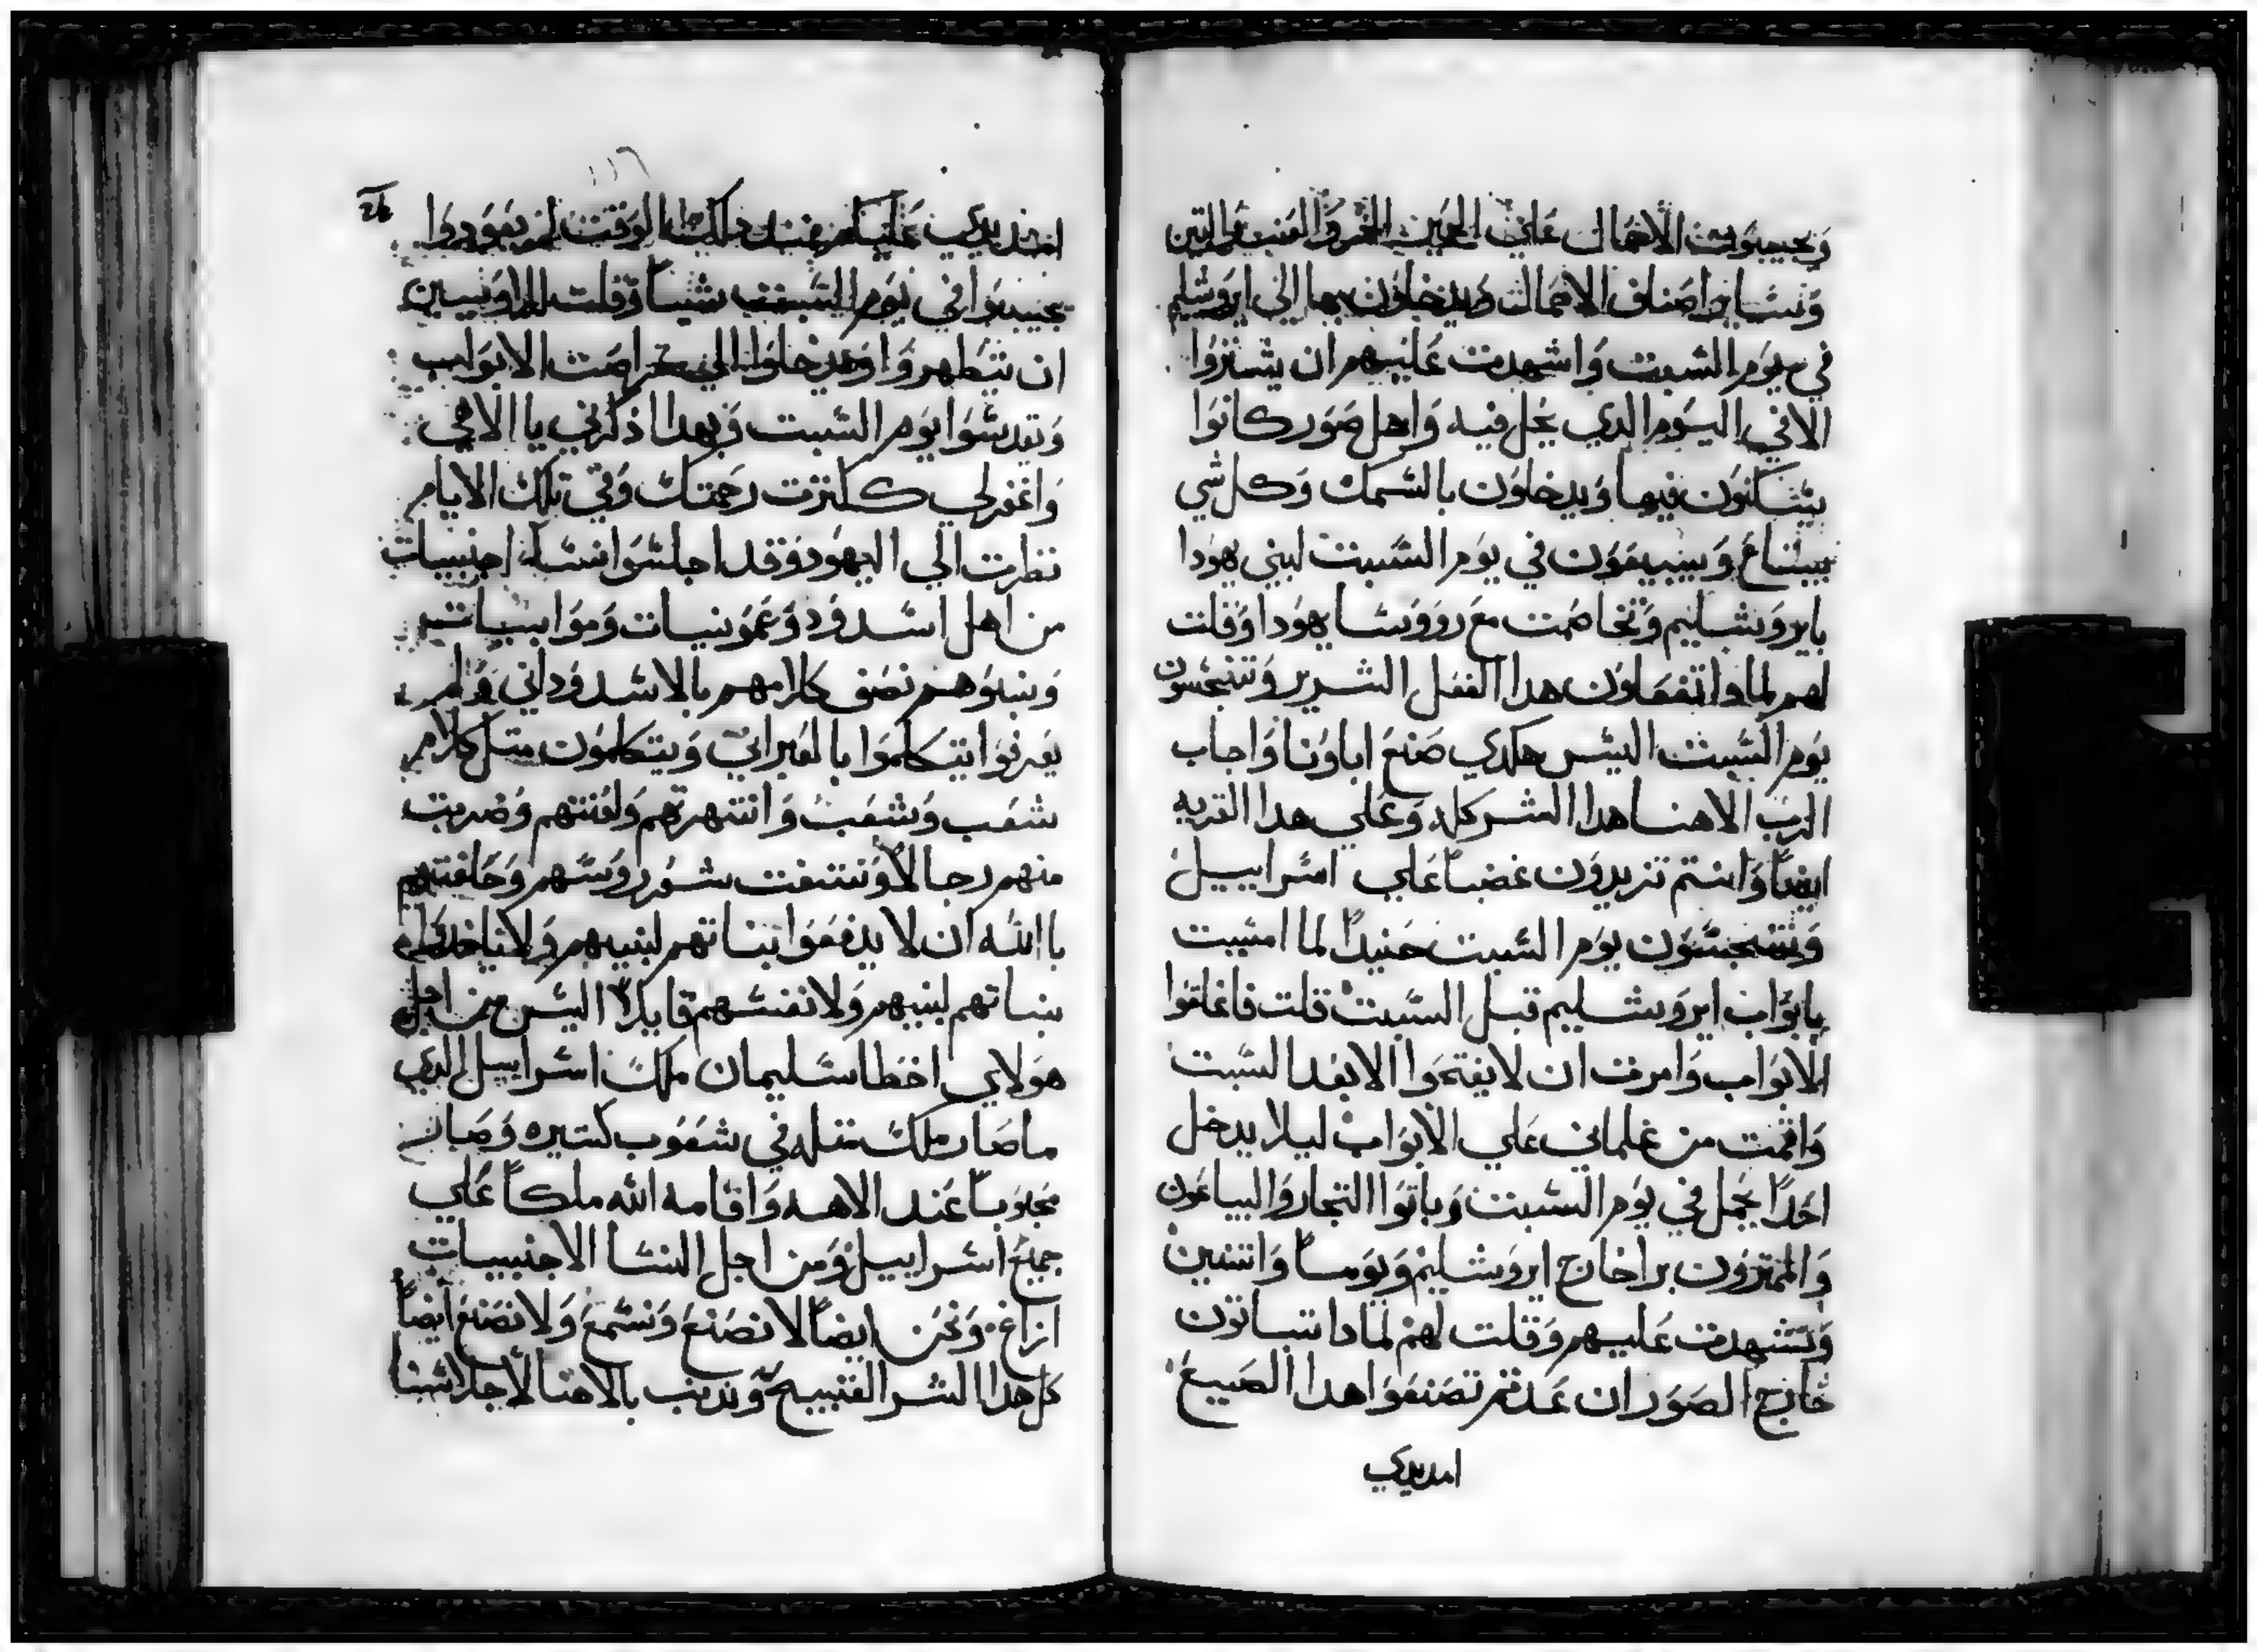 ويجيبون الاحمال علي الحمير الخمر والعنب والتين
وسايراصناف الاحمال ويدخلون بها الي ايروشليم
في يوم السبت واشهدت عليهم ان يشتروا
الافي اليوم الدي يحل فيه واهل صور كانوا
يتسكنون فيها ويدخلون بالسمك وكل شي
يبتاع ويبيعون في يوم السبت لبني يهودا
بايروشليم وتخاصمت مع رووسا يهودا وقلت
لهم لمادا تفعلون هدا الفعل الشرير وتنجسون
يوم السبت اليس هكدي صنع اباونا واجاب
الرب الاهنا هدا الشر كله وعلي هدا القريه
ايضاً وانتم تزيدون غضباً علي اسراييل
وتنجسون يوم السبت حنيداً لما امسيت
بابواب ايروشليم قبل السبت قلت فاغلقوا
الابواب وامرت ان لايفتحوا الابعد السبت
واقمت من غلماني علي الابواب ليلا يدخل
احداً بحمل في يوم السبت وباتوا التجار والبياعون
والممترون براخارج ايروشليم ويوماً واتنين
وتشهدت عليهم وقلت لهم لمادا تباتون
خارج الصور ان عدتم تصنعوا هدا الصيغ
امديدي
١١٦
امد يدي عليكم فمند دلك الوقت لم يعودوا
يجيبوا في يوم السبت شياً وقلت للاويين
ان يتطهروا ويدخلوا الي حراصت الابواب
وتقدسوا يوم السبت وبهدا اذكرني يا الاهي
واغفرلي ككترت رحمتك وفي تلك الايام
نظرت الي اليهود وقد اجلسوا نسآء اجنبيات
من اهل اسدود وعمونيات وموابيات
وبنوهم نصف كلامهم بالاسدوداني ولم
يعرفوا يتكلموا بالعبراني ويتكلمون متل كلام
شعب وشعب وانتهرتهم ولعنتهم وضربت
منهم رجالاً ونتفت شعور روسهم وحلفتهم
باالله ان لا يدفعوا بناتهم لبنيهم ولا ياخدوا
بناتهم لبنيهم ولا نفسهم قايلاً اليس من اجل
هولاي اخطا سليمان ملك اسراييل الدي
ماصار ملك متله في شعوب كتيره وصار
محبوباً عند الاهه واقامه الله ملكاً علي
جميع اسراييل ومن اجل النسا الاجنبيات
ازاغ ونحن ايضاً لا نصنع ونسمع ولا نصنع ايضاً
كل هدا الشر القبيح وندنب بالاهنا لأجل